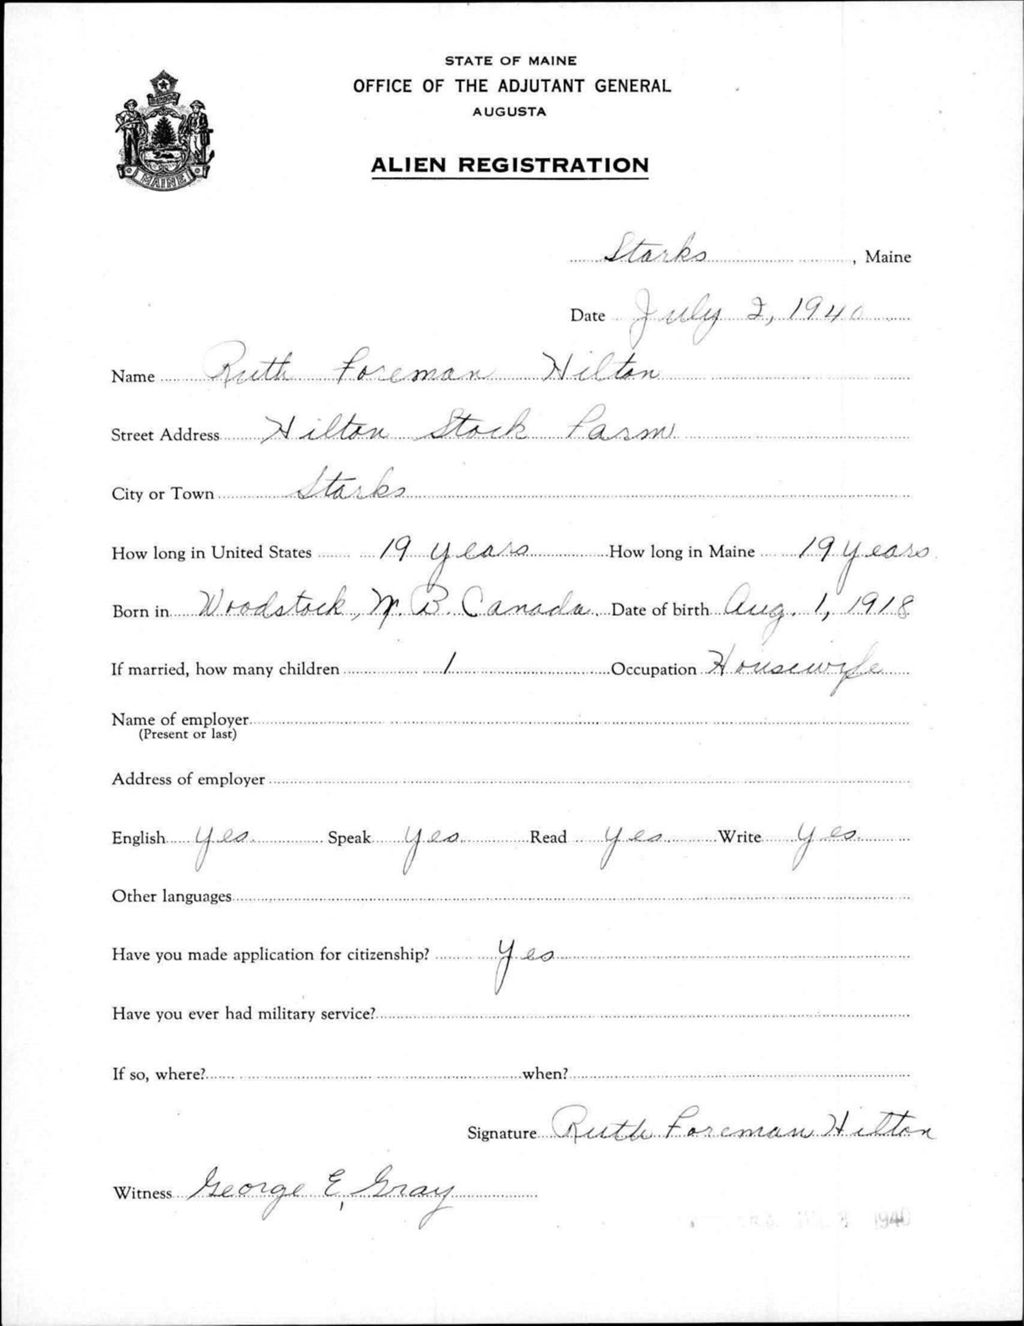 STATE OF MAINE
OFFICE OF THE ADJUTANT GENERAL
AUGUSTA
MAINE
ALIEN REGISTRATION
Starks, Maine
Date July 2, 1940
Name Ruth Foreman Hilton
Street Address Hilton Stock Farm
City or Town Starks
How long in United States 19 years How long in Maine 19 years
Born in Woodstock, N. B. Canada. Date of birth Aug. 1, 1918
If married, how many children 1 Occupation Housewife
Name of employer
(Present or last)
Address of employer
English Yes. Speak Yes. Read Yes. Write Yes.
Other languages
Have you made application for citizenship? Yes
Have you ever had military service?
If so, where? when?
Signature Ruth Foreman Hilton
Witness George E. Gray
1940